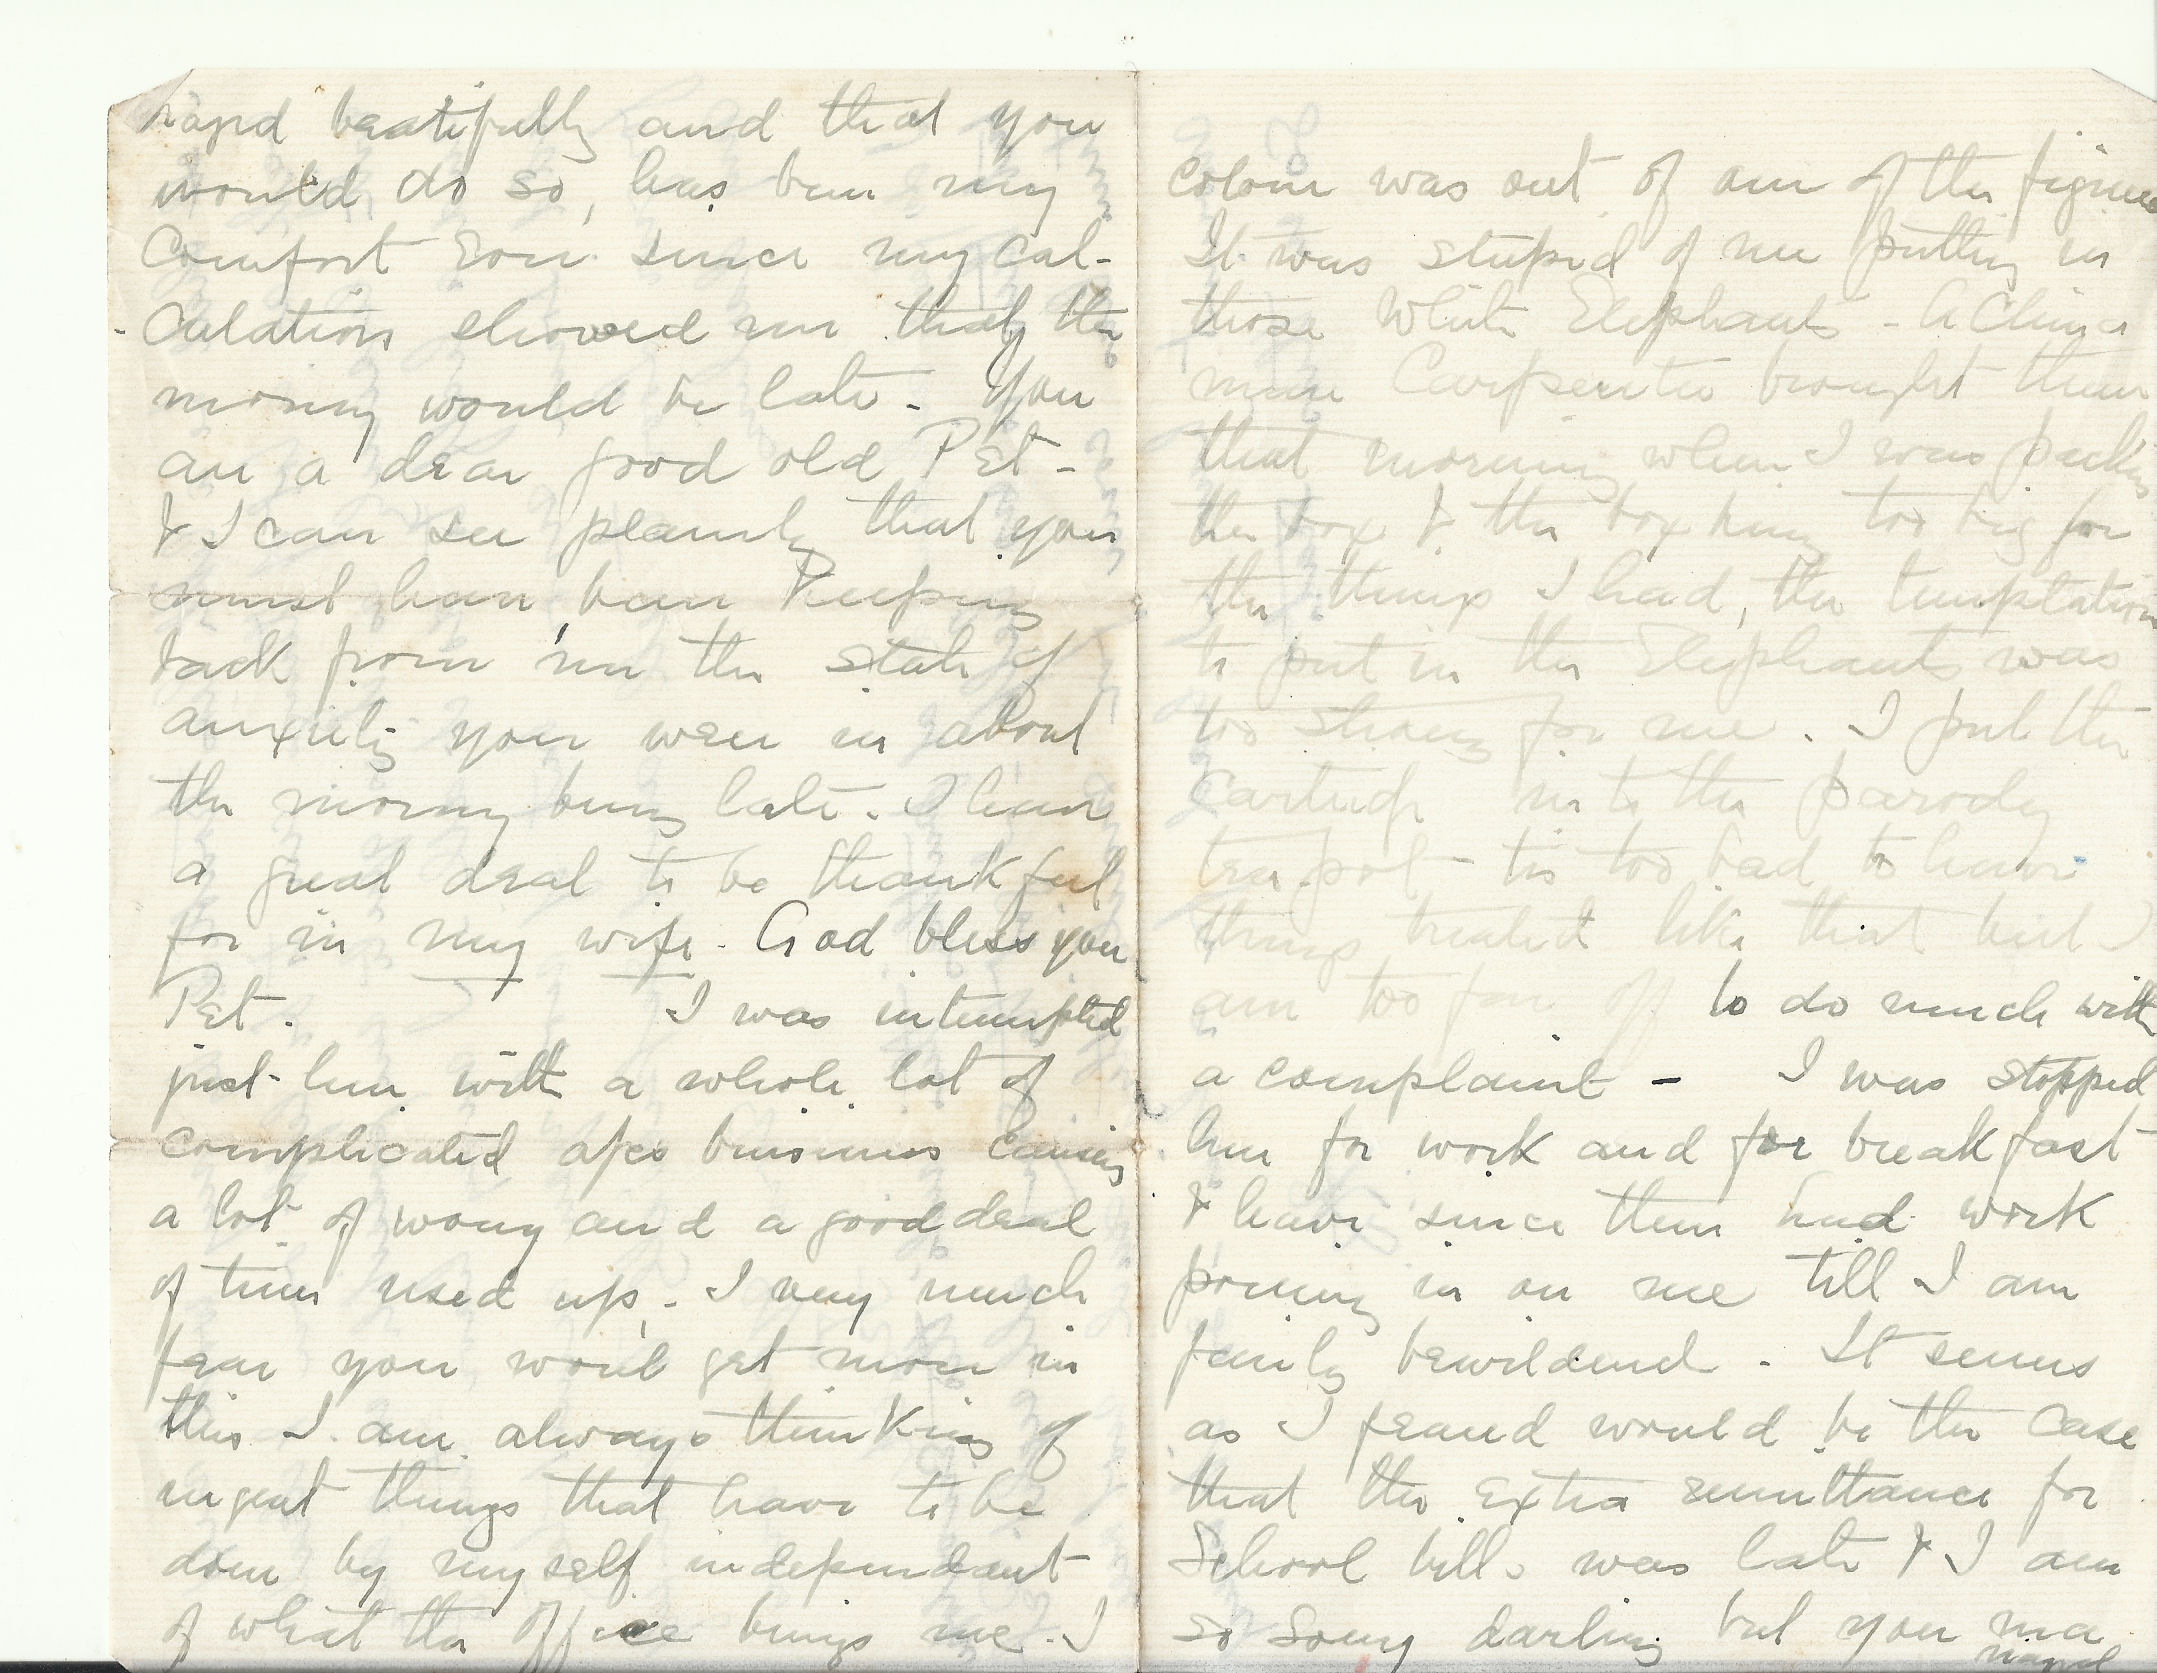 naged beautifully and that you
would do so, has been my
Comfort Ever since my cal-
-culation showed me that the
money would be late - You
are a dear good old Pet -
& I can see plainly that you
must have been Keeping
back from me the state of
anxiety you were in about
the money being late. I have
a great deal to be thankful
for in my wife. God bless you
Pet. I was interrupted
just here with a whole lot of
complicated business causing
a lot of worry and a good deal
of time used up. I very much
fear you wont get more in
this I am always thinking of
urgent things that have to be
done by myself independant
of what the office brings me - I
colour was out of one of the figures
It was stupid of me putting in
those White Elephants - A China
man Carpenter brought them
that morning when I was packing
the box & the box being too big for
the things I had, the temptation
to put in the Elephants was
too strong for me. I put the
Cartridge into the
teapot - tis too bad to have
things treated like that but I
am too far off to do much with
a complaint - I was stopped
here for work and for breakfast
& have since then had work
pouring in on me till I am
fairly bewildered - It seems
as I feared would be the Case
that the Extra remittance for
School bills was late & I am
so sorry darling but you ma
naged